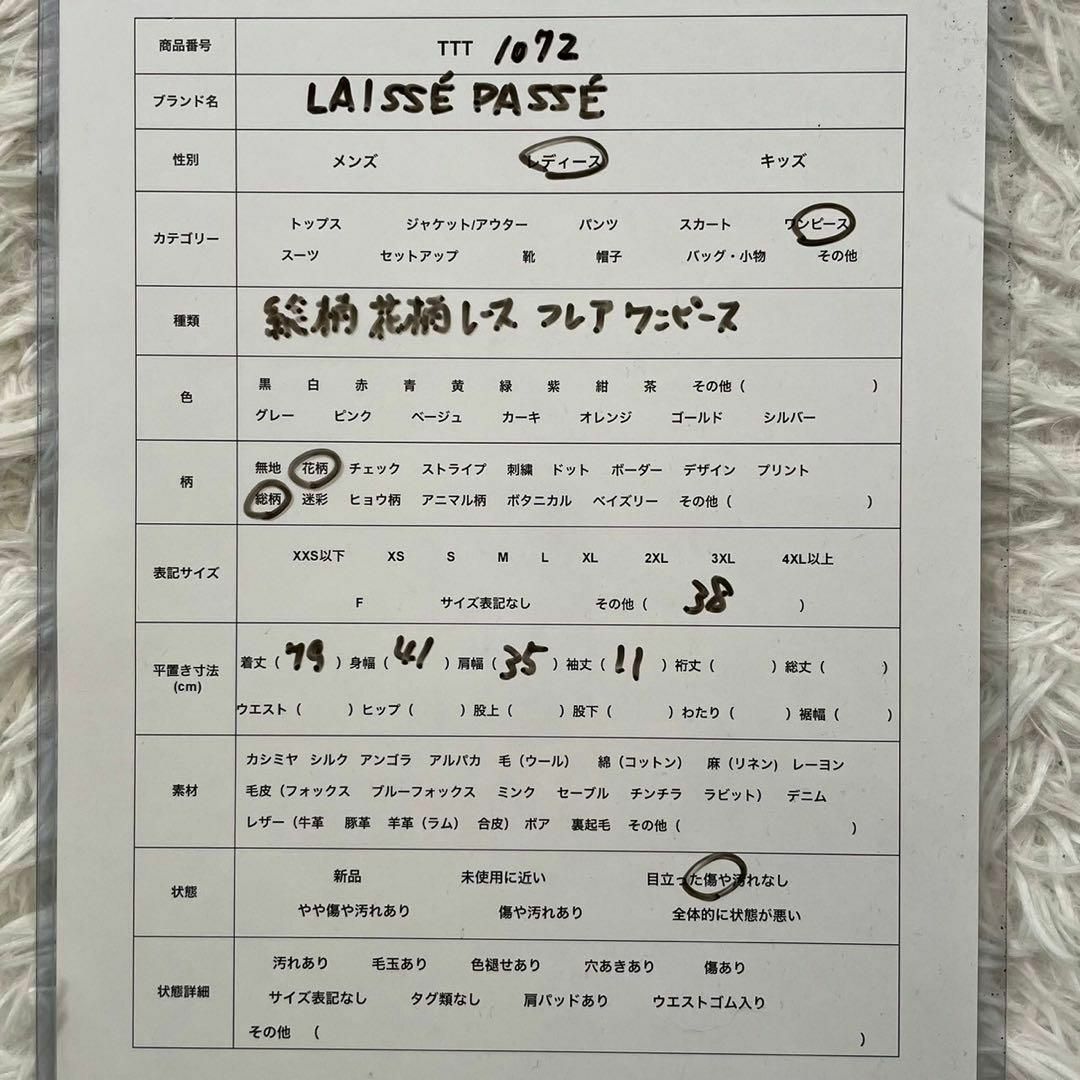 商品番号 TTT 1072
ブランド名 LAISSÉ PASSÉ
性別 メンズ レディース キッズ
トップス ジャケット/アウター パンツ スカート ワンピース
カテゴリー
スーツ セットアップ 靴 帽子 バッグ・小物 その他
種類 総柄 花柄 レース フレア ワンピース
黒 白 赤 青 黄 緑 紫 紺 茶 その他（ ）
色
グレー ピンク ベージュ カーキ オレンジ ゴールド シルバー
無地 花柄 チェック ストライプ 刺繍 ドット ボーダー デザイン プリント
柄
総柄 迷彩 ヒョウ柄 アニマル柄 ボタニカル ペイズリー その他（ ）
XXS以下 XS S M L XL 2XL 3XL 4XL以上
表記サイズ
F サイズ表記なし その他（ 38 ）
着丈（ 79 ）身幅（ 41 ）肩幅（ 35 ）袖丈（ 11 ）裄丈（ ）総丈（ ）
平置き寸法
(cm)
ウエスト（ ）ヒップ（ ）股上（ ）股下（ ）わたり（ ）裾幅（ ）
カシミヤ シルク アンゴラ アルパカ 毛（ウール） 綿（コットン） 麻（リネン） レーヨン
素材 毛皮（フォックス ブルーフォックス ミンク セーブル チンチラ ラビット） デニム
レザー（牛革 豚革 羊革（ラム） 合皮） ボア 裏起毛 その他（ ）
新品 未使用に近い 目立った傷や汚れなし
状態
やや傷や汚れあり 傷や汚れあり 全体的に状態が悪い
汚れあり 毛玉あり 色褪せあり 穴あきあり 傷あり
状態詳細 サイズ表記なし タグ類なし 肩パッドあり ウエストゴム入り
その他 （ ）